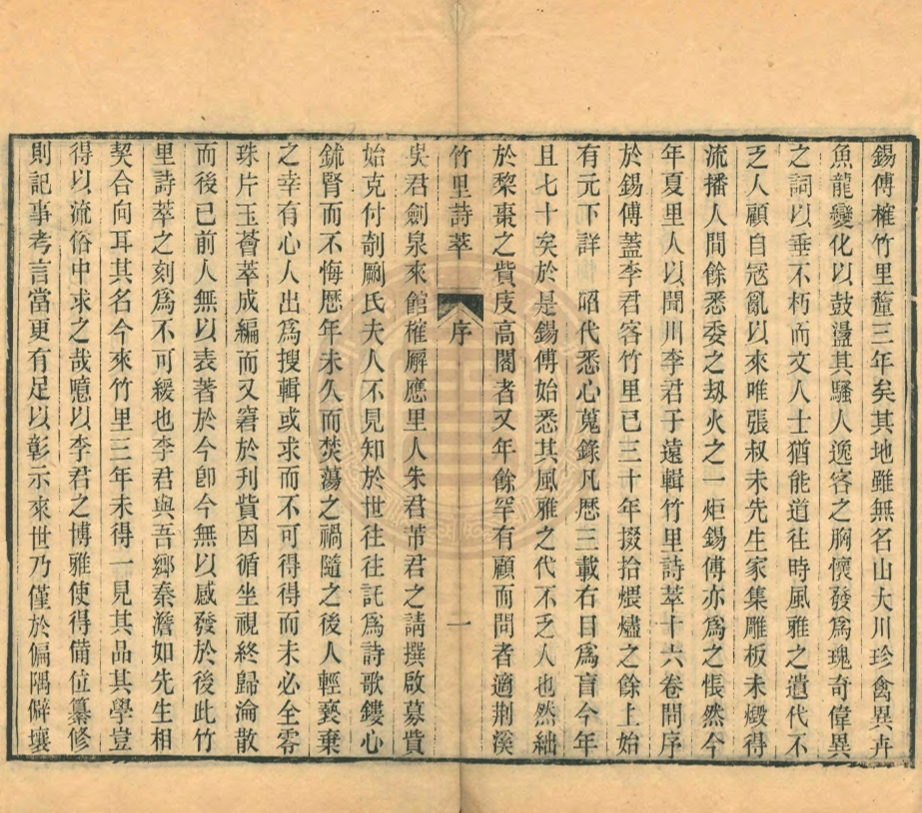 錫傅榷竹里釐三年矣其地雖無名山大川珍禽異卉
魚龍變化以鼓盪其騷人逸客之胸懷發爲瑰奇偉異
之詞以垂不朽而文人士猶能道往時風雅之遺代不
乏人顧自寇亂以來唯張叔未先生家集雕板未燬得
流播人間餘悉委之刼火之一炬錫傅亦爲之悵然今
年夏里人以聞川李君子遠輯竹里詩萃十六卷問序
於錫傅蓋李君客竹里已三十年掇拾煨燼之餘上始
有元下詳 昭代悉心蒐錄凡歷三載右目爲盲今年
且七十矣於是錫傅始悉其風雅之代不乏人也然絀
於棃棗之貲庋高閣者又年餘罕有顧而問者適荆溪
竹里詩萃 序 一
吳君劍泉來館榷廨應里人朱君芾君之請撰啟募貲
始克付剞劂氏夫人不見知於世往往託爲詩歌鏤心
鉥腎而不悔歷年未久而焚蕩之禍隨之後人輕褻棄
之幸有心人出爲搜輯或求而不可得得而未必全零
珠片玉薈萃成編而又窘於刋貲因循坐視終歸淪散
而後已前人無以表著於今卽今無以感發於後此竹
里詩萃之刻爲不可緩也李君與吾鄉秦澹如先生相
契合向耳其名今來竹里三年未得一見其品其學豈
得以流俗中求之哉噫以李君之博雅使得備位纂修
則記事考言當更有足以彰示來世乃僅於偏隅僻壤